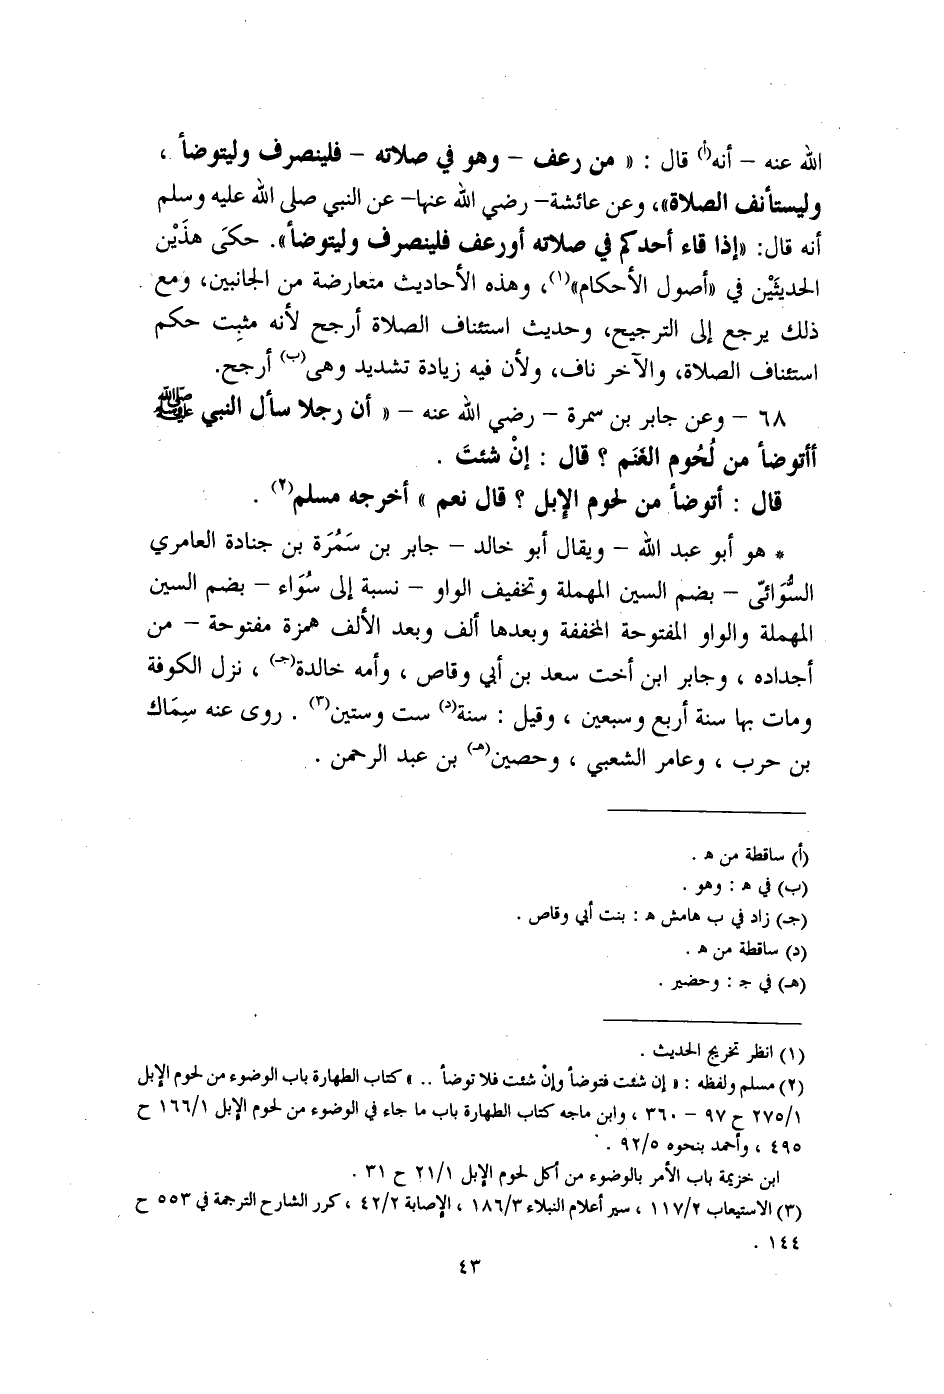 الله عنه – أنه(أ) قال : « من رعف – وهو في صلاته – فلينصرف وليتوضأ ،
وليستأنف الصلاة»، وعن عائشة– رضي الله عنها– عن النبي صلى الله عليه وسلم
أنه قال: «إذا قاء أحدكم في صلاته أورعف فلينصرف وليتوضأ». حكَى هذَيْن
الحديثَيْن في «أصول الأحكام»(١)، وهذه الأحاديث متعارضة من الجانبين، ومع
ذلك يرجع إلى الترجيح، وحديث استئناف الصلاة أرجح لأنه مثبِت حكم
استئناف الصلاة، والآخر ناف، ولأن فيه زيادة تشديد وهى(ب) أرجح.
٦٨ – وعن جابر بن سمرة – رضي الله عنه – « أن رجلا سأل النبي ﷺ
أأتوضأ من لُحُوم الغَنَم ؟ قال : إنْ شئتَ .
قال : أتوضأ من لحوم الإبل ؟ قال نعم » أخرجه مسلم(٢) .
* هو أبو عبد الله – ويقال أبو خالد – جابر بن سَمُرَة بن جنادة العامري
السُّوَائىّ – بضم السين المهملة وتخفيف الواو – نسبة إلى سُوَاء – بضم السين
المهملة والواو المفتوحة المخففة وبعدها ألف وبعد الألف همزة مفتوحة – من
أجداده ، وجابر ابن أخت سعد بن أبي وقاص ، وأمه خالدة(جـ) ، نزل الكوفة
ومات بها سنة أربع وسبعين ، وقيل : سنة(د) ست وستين(٣) . روى عنه سِمَاك
بن حرب ، وعامر الشعبي ، وحصين(هـ) بن عبد الرحمن .
(أ) ساقطة من هـ .
(ب) في هـ : وهو .
(جـ) زاد في ب هامش هـ : بنت أبي وقاص .
(د) ساقطة من هـ .
(هـ) في جـ : وحضير .
(١) انظر تخريج الحديث .
(٢) مسلم ولفظه : « إن شئت فتوضأ وإنْ شئت فلا توضأ .. » كتاب الطهارة باب الوضوء من لحوم الإبل
٢٧٥/١ ح ٩٧ – ٣٦٠ ، وابن ماجه كتاب الطهارة باب ما جاء في الوضوء من لحوم الإبل ١٦٦/١ ح
٤٩٥ ، وأحمد بنحوه ٩٢/٥ .
ابن خزيمة باب الأمر بالوضوء من أكل لحوم الإبل ٢١/١ ح ٣١ .
(٣) الاستيعاب ١١٧/٢ ، سير أعلام النبلاء ١٨٦/٣ ، الإصابة ٤٢/٢ ، كرر الشارح الترجمة في ٥٥٣ ح
١٤٤ .
٤٣